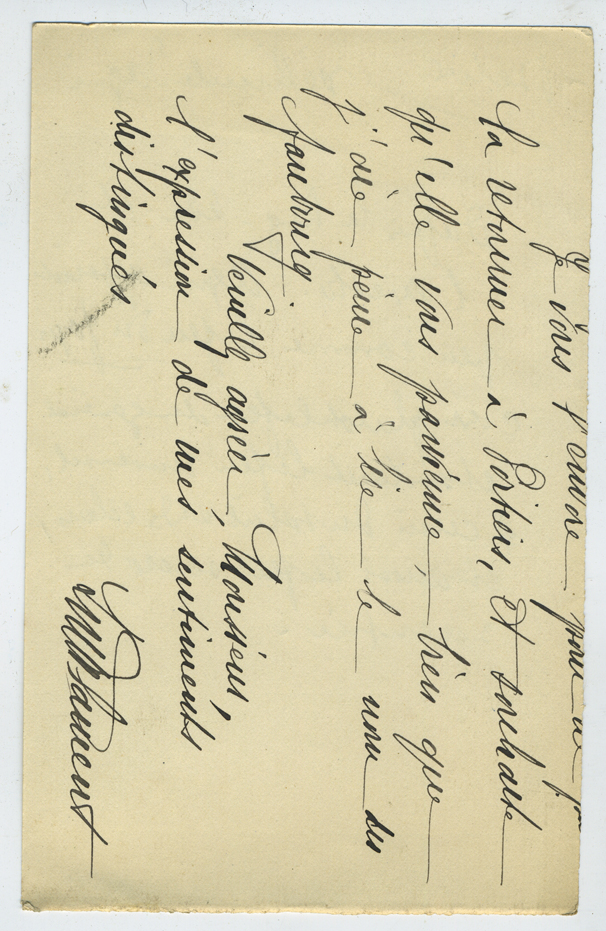 Je vous l'envoie pour ne pas
la retourner à Poitiers, et souhaite
qu'elle vous parvienne, bien que
j'aie peine à lire le nom du
faubourg.
Veuillez agréer, Monsieur,
l'expression de mes sentiments
distingués